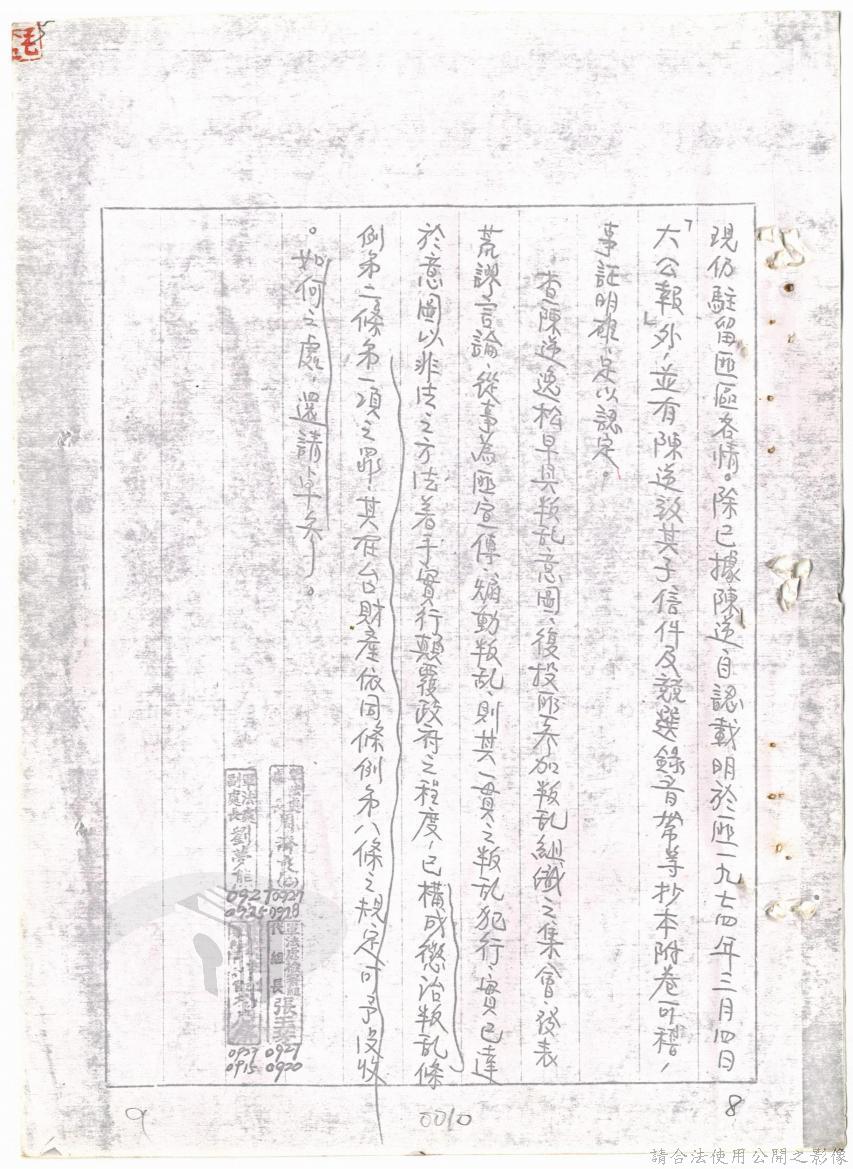 現仍駐留匪區各情。除已據陳逆自認載明於匪一九七四年三月四日
「大公報」外，並有陳逆致其子信件及競選錄音帶等抄本附卷可稽，
事証明確，足以認定。
查陳逆逸松早具叛乱意圖，復投匪參加叛乱組織之集會，發表
荒謬言論，從事為匪宣傳，煽動叛乱，則其一貫之叛乱犯行，實已達
於意圖以非法之方法着手實行顛覆政府之程度，已構成懲治叛乱條
例第二條第一項之罪，其在台財產依同條例第八條之規定可予沒收
。如何之處，還請卓參。
0927
0928
軍法處
副處長 劉夢能
0927
0925
軍法處
代組長 張玉
0927
0920
0927
0915
8
0010
9
請合法使用公開之影像